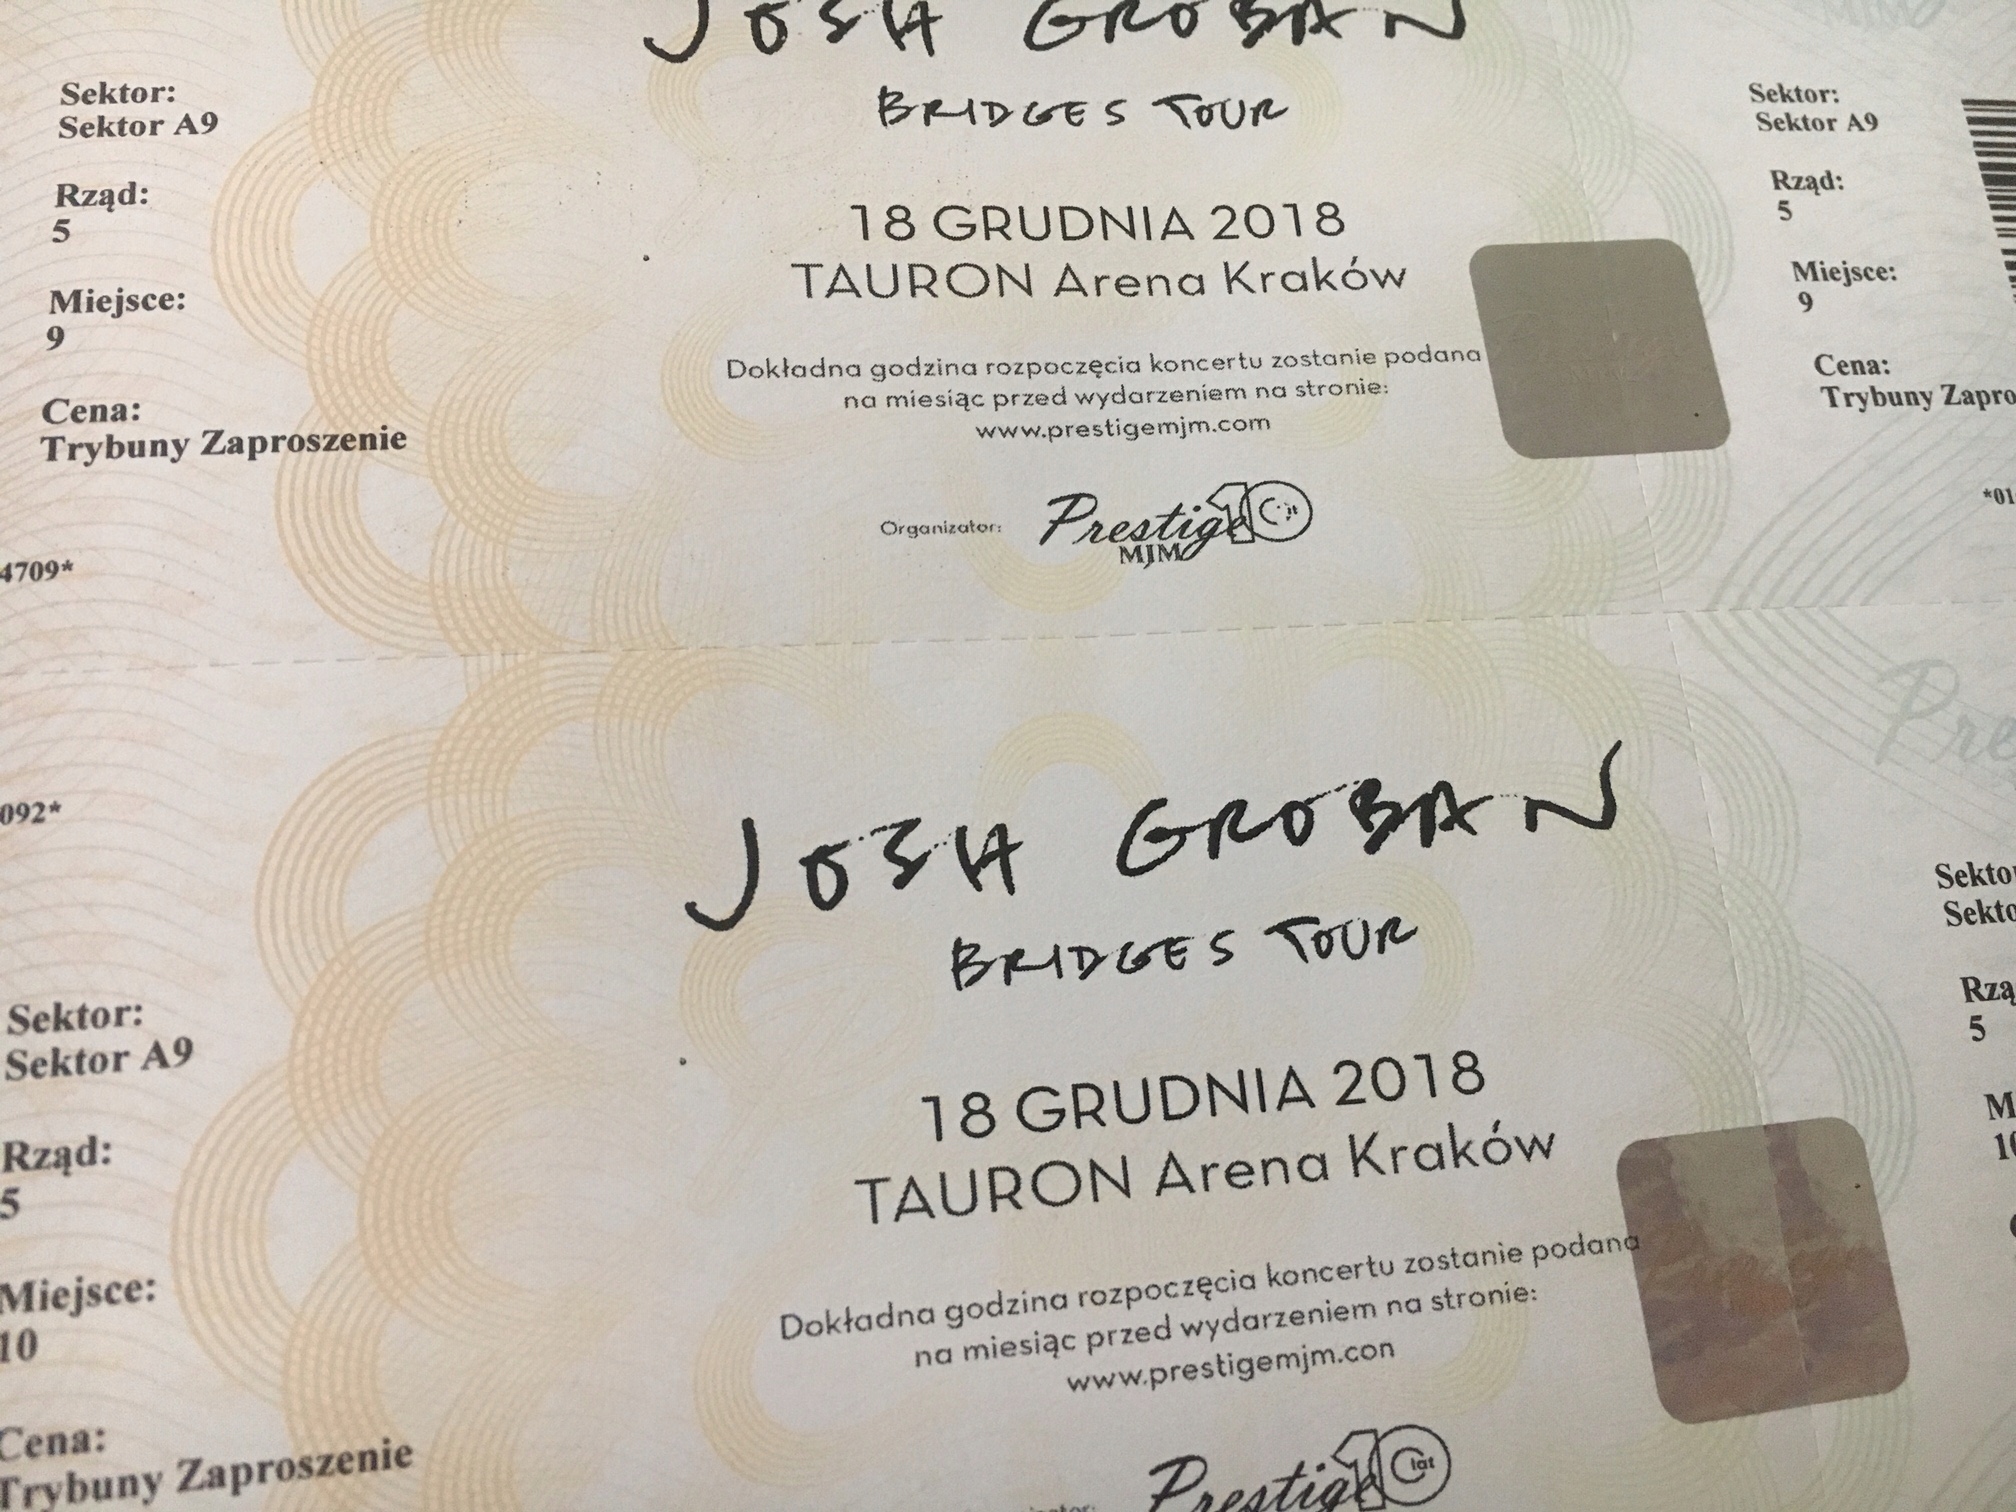 JOSH GROBAN
BRIDGES TOUR
18 GRUDNIA 2018
TAURON Arena Kraków
Dokładna godzina rozpoczęcia koncertu zostanie podana
na miesiąc przed wydarzeniem na stronie:
www.prestigemjm.com
Organizator: Prestige 10
MJM
Sektor:
Sektor A9
Rząd:
5
Miejsce:
9
Cena:
Trybuny Zaproszenie
4709*
Sektor:
Sektor A9
Rząd:
5
Miejsce:
9
Cena:
Trybuny Zapro
*01
092*
Pre
JOSH GROBAN
BRIDGES TOUR
18 GRUDNIA 2018
TAURON Arena Kraków
Dokładna godzina rozpoczęcia koncertu zostanie podana
na miesiąc przed wydarzeniem na stronie:
www.prestigemjm.con
Prestige 10 lat
Sektor:
Sektor A9
Rząd:
5
Miejsce:
10
Cena:
Trybuny Zaproszenie
Sekto
Sekto
Rzą
5
M
10